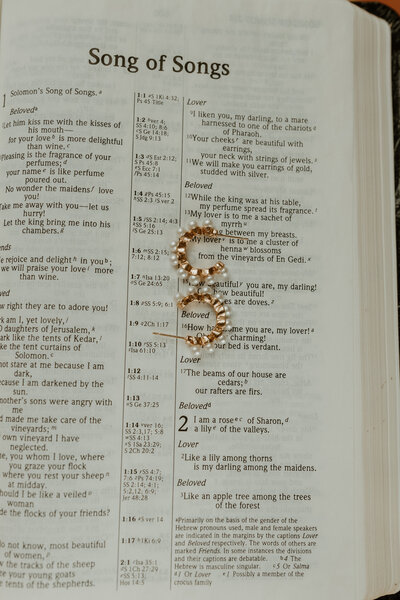 Song of Songs
1 Solomon's Song of Songs. a
Beloved b
Let him kiss me with the kisses of
his mouth—
for your love b is more delightful
than wine. c
Pleasing is the fragrance of your
perfumes; d
your name e is like perfume
poured out.
No wonder the maidens f love
you!
Take me away with you—let us
hurry!
Let the king bring me into his
chambers. g
We rejoice and delight h in you b;
we will praise your love i more
than wine.
right they are to adore you!
am I, yet lovely, j
daughters of Jerusalem, k
dark like the tents of Kedar, l
like the tent curtains of
Solomon. c
not stare at me because I am
dark,
because I am darkened by the
sun.
mother's sons were angry with
me
and made me take care of the
vineyards; m
own vineyard I have
neglected.
me, you whom I love, where
you graze your flock
where you rest your sheep n
at midday.
should I be like a veiled o
woman
beside the flocks of your friends?
do not know, most beautiful
of women, p
the tracks of the sheep
your young goats
the tents of the shepherds.
1:1 #S 1Ki 4:32;
Ps 45 Title
1:2 b ver 4;
SS 4:10; 8:6
c S Ge 14:18;
S Jdg 9:13
1:3 d S Est 2:12;
S Ps 45:8
e S Ecc 7:1
f Ps 45:14
1:4 g Ps 45:15
h SS 2:3 i S ver 2
1:5 j SS 2:14; 4:3
k SS 5:16
l S Ge 25:13
1:6 m SS 2:15;
7:12; 8:12
1:7 n Isa 13:20
o S Ge 24:65
1:8 p SS 5:9; 6:1
1:9 q 2Ch 1:17
1:10 r SS 5:13
s Isa 61:10
1:12
t SS 4:11-14
1:13
u S Ge 37:25
1:14 v ver 16;
SS 2:3,17; 5:8
w SS 4:13
x 1Sa 23:29;
S 2Ch 20:2
1:15 y SS 4:7;
7:6 z Ps 74:19;
SS 2:14; 4:1;
5:2,12; 6:9;
Jer 48:28
1:16 a S ver 14
1:17 b 1Ki 6:9
2:1 c Isa 35:1
d S 1Ch 27:29
e SS 5:13;
Hos 14:5
Lover
9 I liken you, my darling, to a mare
harnessed to one of the chariots q
of Pharaoh.
10 Your cheeks r are beautiful with
earrings,
your neck with strings of jewels. s
11 We will make you earrings of gold,
studded with silver.
Beloved
12 While the king was at his table,
my perfume spread its fragrance. t
13 My lover is to me a sachet of
myrrh u
between my breasts.
My lover v is to me a cluster of
henna w blossoms
from the vineyards of En Gedi. x
you are, my darling!
beautiful!
are doves. z
Beloved
16 How me you are, my lover! a
charming!
bed is verdant.
Lover
17 The beams of our house are
cedars; b
our rafters are firs.
Beloved d
2 I am a rose e c of Sharon, d
a lily e of the valleys.
Lover
2 Like a lily among thorns
is my darling among the maidens.
Beloved
3 Like an apple tree among the trees
of the forest
a Primarily on the basis of the gender of the
Hebrew pronouns used, male and female speakers
are indicated in the margins by the captions Lover
and Beloved respectively. The words of others are
marked Friends. In some instances the divisions
and their captions are debatable. b 4 The
Hebrew is masculine singular. c 5 Or Salma
d 1 Or Lover e 1 Possibly a member of the
crocus family